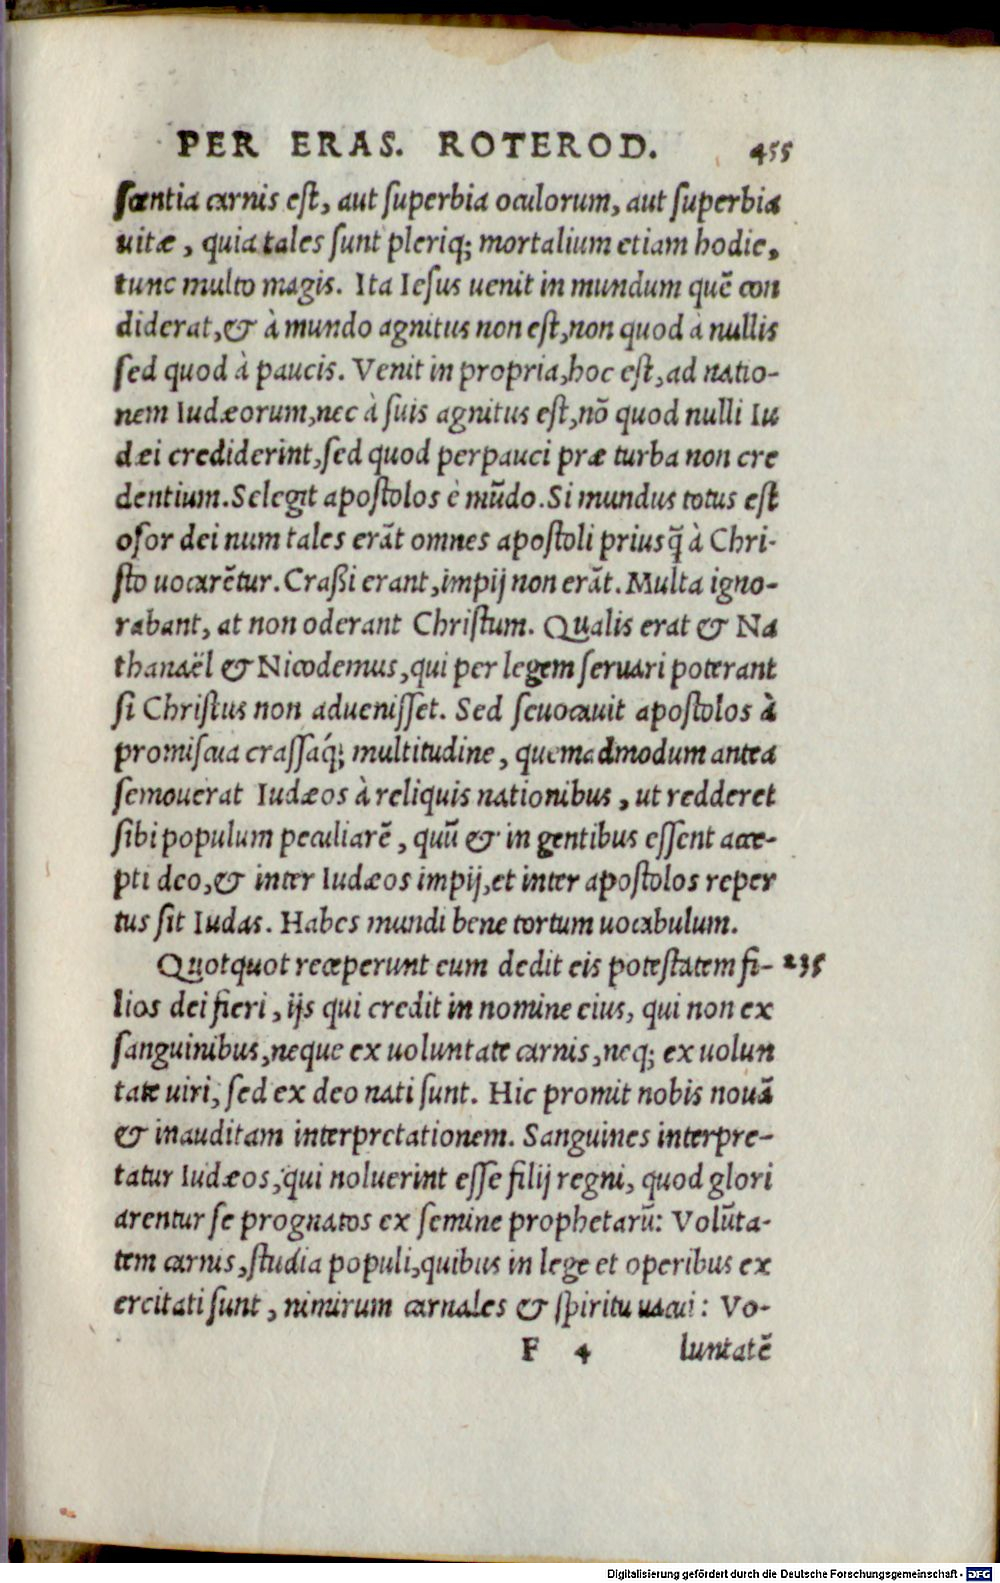 PER ERAS. ROTEROD. 455
scentia carnis est, aut superbia oculorum, aut superbia
uitæ, quia tales sunt pleriq; mortalium etiam hodie,
tunc multo magis. Ita Iesus uenit in mundum quē con
diderat, & à mundo agnitus non est, non quod à nullis
sed quod à paucis. Venit in propria, hoc est, ad natio-
nem Iudæorum, nec à suis agnitus est, nō quod nulli Iu
dæi crediderint, sed quod perpauci præ turba non cre
dentium. Selegit apostolos è mūdo. Si mundus totus est
osor dei num tales erāt omnes apostoli priusq̄ à Chri-
sto uocarētur. Craßi erant, impij non erāt. Multa igno-
rabant, at non oderant Christum. Qualis erat & Na
thanaël & Nicodemus, qui per legem seruari poterant
si Christus non aduenisset. Sed seuocauit apostolos à
promiscua crassaq́; multitudine, quemadmodum antea
semouerat Iudæos à reliquis nationibus, ut redderet
sibi populum peculiarē, quū & in gentibus essent acce-
pti deo, & inter Iudæos impij, et inter apostolos reper
tus sit Iudas. Habes mundi bene tortum uocabulum.
Quotquot receperunt eum dedit eis potestatem fi- 235
lios dei fieri, ijs qui credit in nomine eius, qui non ex
sanguinibus, neque ex uoluntate carnis, neq; ex uolun
tate uiri, sed ex deo nati sunt. Hic promit nobis nouā
& inauditam interpretationem. Sanguines interpre-
tatur Iudæos, qui noluerint esse filij regni, quod glori
arentur se prognatos ex semine prophetarū: Volūta-
tem carnis, studia populi, quibus in lege et operibus ex
ercitati sunt, nimirum carnales & spiritu uacui: Vo-
F 4 luntatē
Digitalisierung gefördert durch die Deutsche Forschungsgemeinschaft - DFG